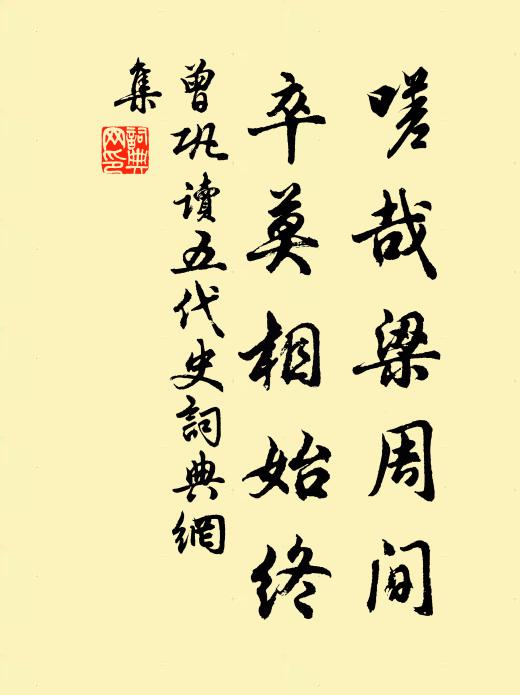 嗟哉梁周间
卒莫相始终
曾巩读五代史詞典網
集
詞典
网印